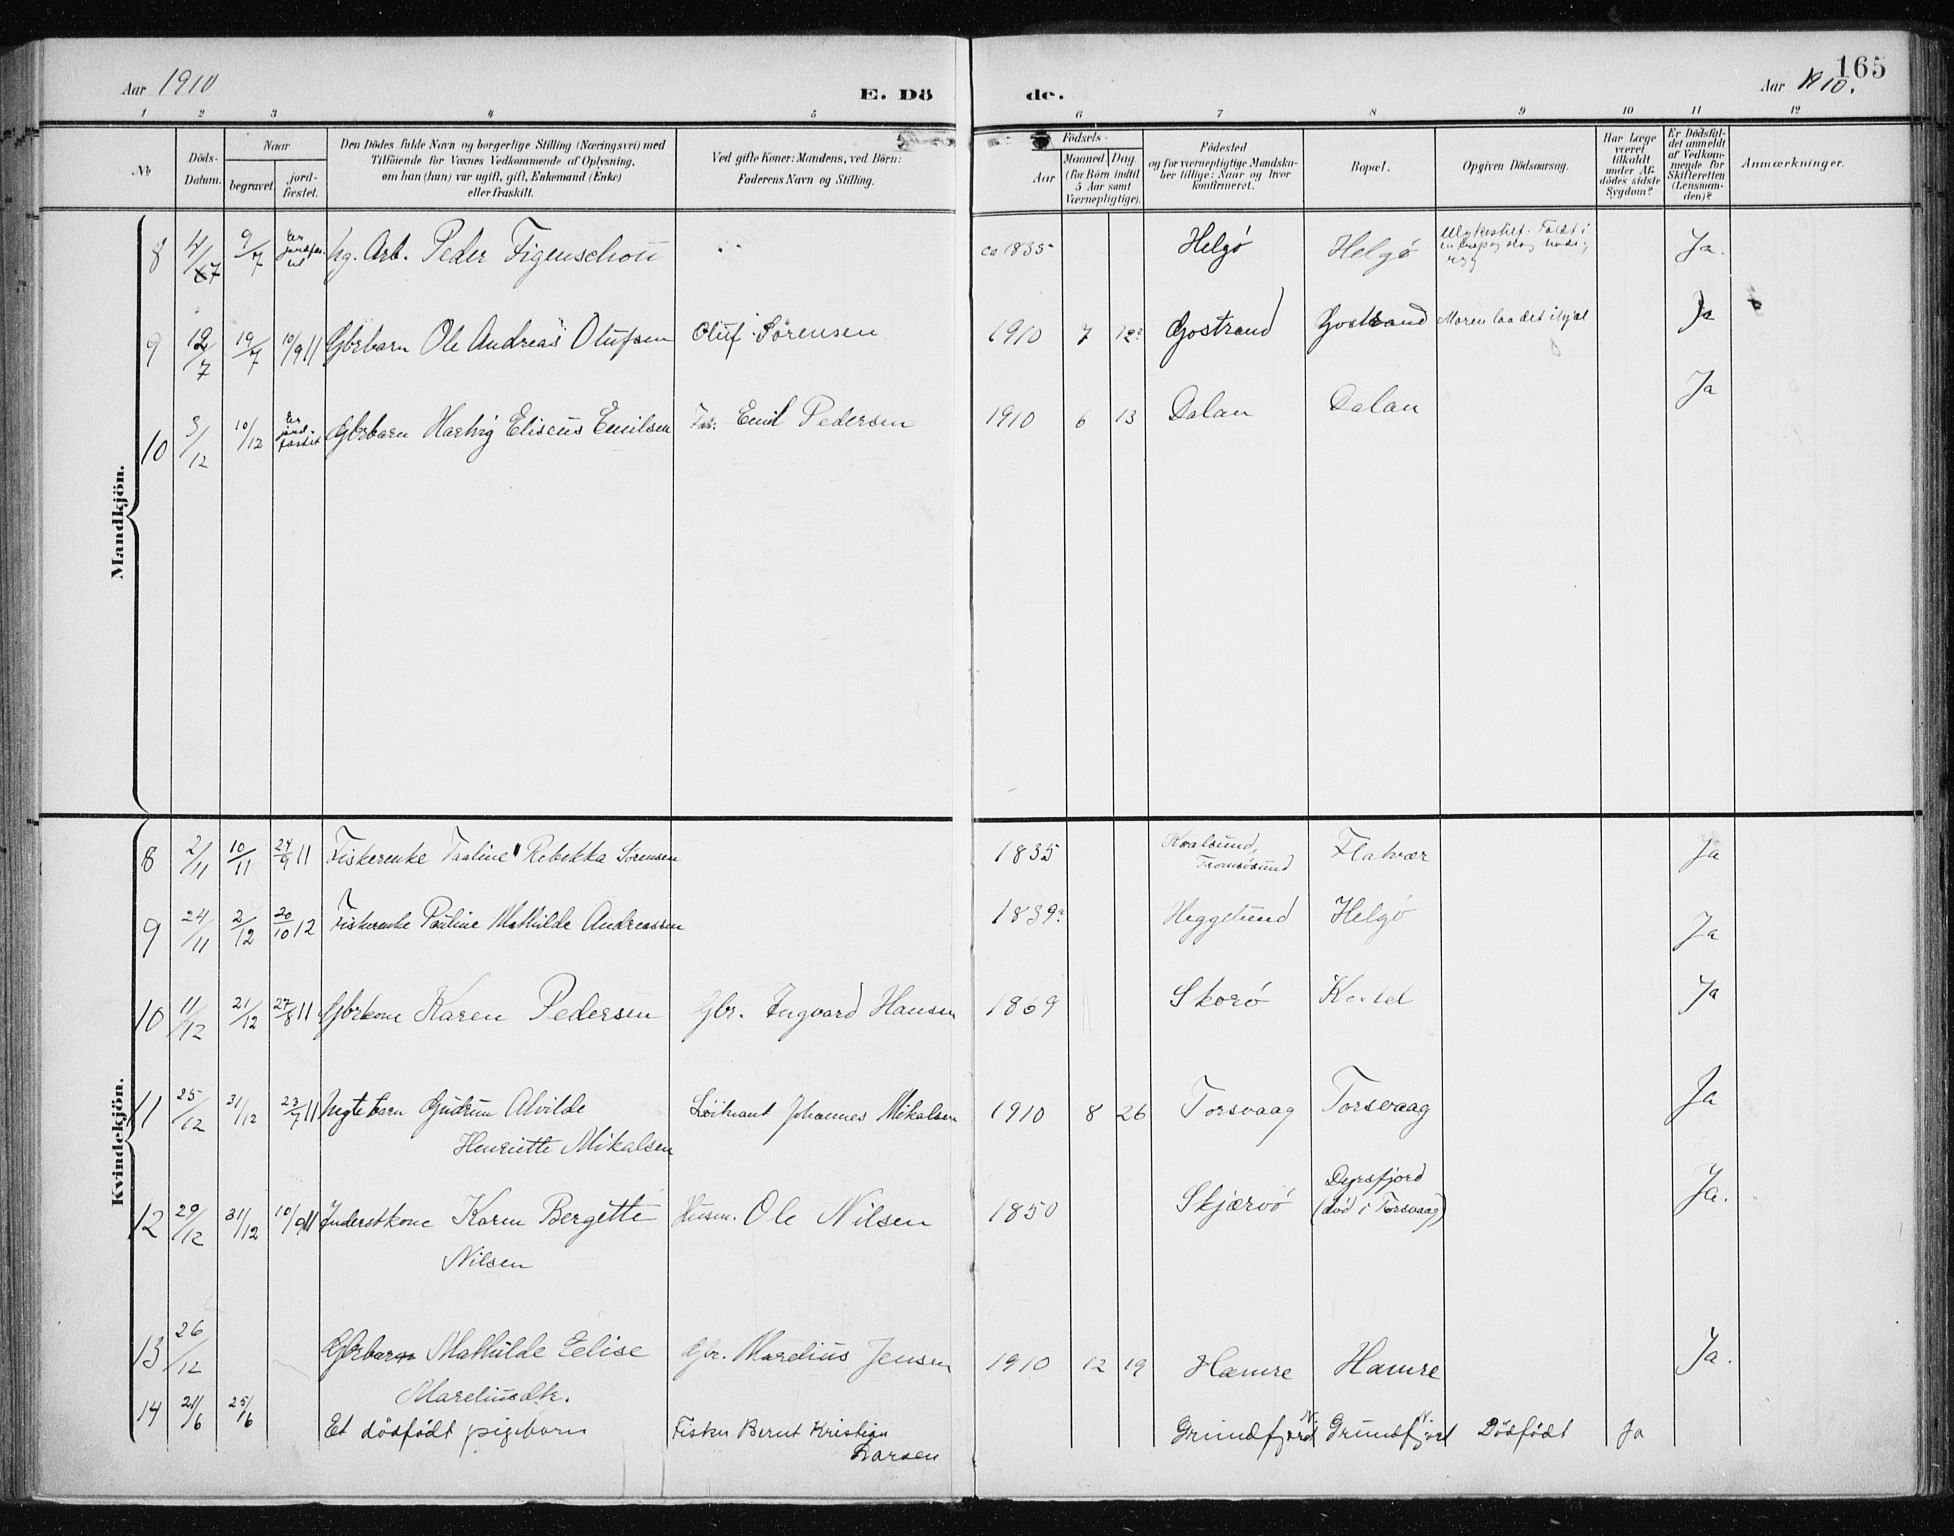 Aar 1910
E. Dö
de.
165
Aar 1910.
1 2 3 4 5 6 7 8 9 10 11 12
No
Döds-Datum.
Naar
begravet
jord-fæstet.
Den Dödes fulde Navn og borgerlige Stilling (Næringsvei) med
Tilföiende for Voxnes Vedkommende af Oplysning,
om han (hun) var ugift, gift, Enkemand (Enke)
eller fraskilt.
Ved gifte Koner: Mandens, ved Börn:
Faderens Navn og Stilling.
Födsels-
Aar
Maaned Dag.
(for Börn indtil
5 Aar samt
Værnepligtige).
Födested
og for værnepligtige Mandska-
ber tillige: Naar og hvor
konfirmeret.
Bopæl.
Opgiven Dödsaarsag.
Har Læge
været
tilkaldt
under Af-
dödes sidste
Sygdom?
Er Dödsfal-
det anmeldt
af Vedkom-
mende for
Skifteretten
(Lensman-
den)?
Anmærkninger.
Mandkjön.
8 4/7 9/7 Er jordfæstet Arb. Peder Figenschou ca 1835 Helgø Helgø Ja.
9 12/7 19/7 10/9 11 Gbrbarn Ole Andreas Olufsen Oluf Sörensen 1910 7 12? Gostrand Gostrand Moren laa det ihjæl Ja
10 3/12 10/12 Er jordfæstet Gbrbarn Hartvig Eliseus Emilsen Far: Emil Pedersen 1910 6 13 Dalan Dalan Ja
Kvindekjön.
8 2/11 10/11 24/9 11 Fiskerenke Taaline Rebekka Sørensen 1835 Kvalsund, Tromsøsund Flatvær Ja
9 24/11 2/12 20/10 12 Fiskerenke Pauline Mathilde Andreassen 1839? Heggelund Helgø Ja
10 11/12 21/12 27/8 11 Gbrkone Karen Pedersen Gbr. Ingvard Hansen 1869 Skorø Ja
11 25/12 31/12 23/7 11 Gudrun Alvilde
Henriette Mikalsen Löitnant Johannes Mikalsen 1910 8 26 Torsvaag Torsvaag Ja
12 29/12 31/12 10/9 11 Inderstkone Karen Bergitte
Nilsen Husm. Ole Nilsen 1850 Skjærvö Dyrsfjord
(död i Torsvaag) Ja.
13 26/12 Gbrbarn Mathilde Edise
Mareliusdtr. Gbr. Marelius Jensen 1910 12 19 Hamre Hamre Ja.
14 21/6 25/6 Et dödfödt pigebarn Fisker Bernt Kristian
Larsen Grundfjord N. Grundfjord N. Dödfödt Ja